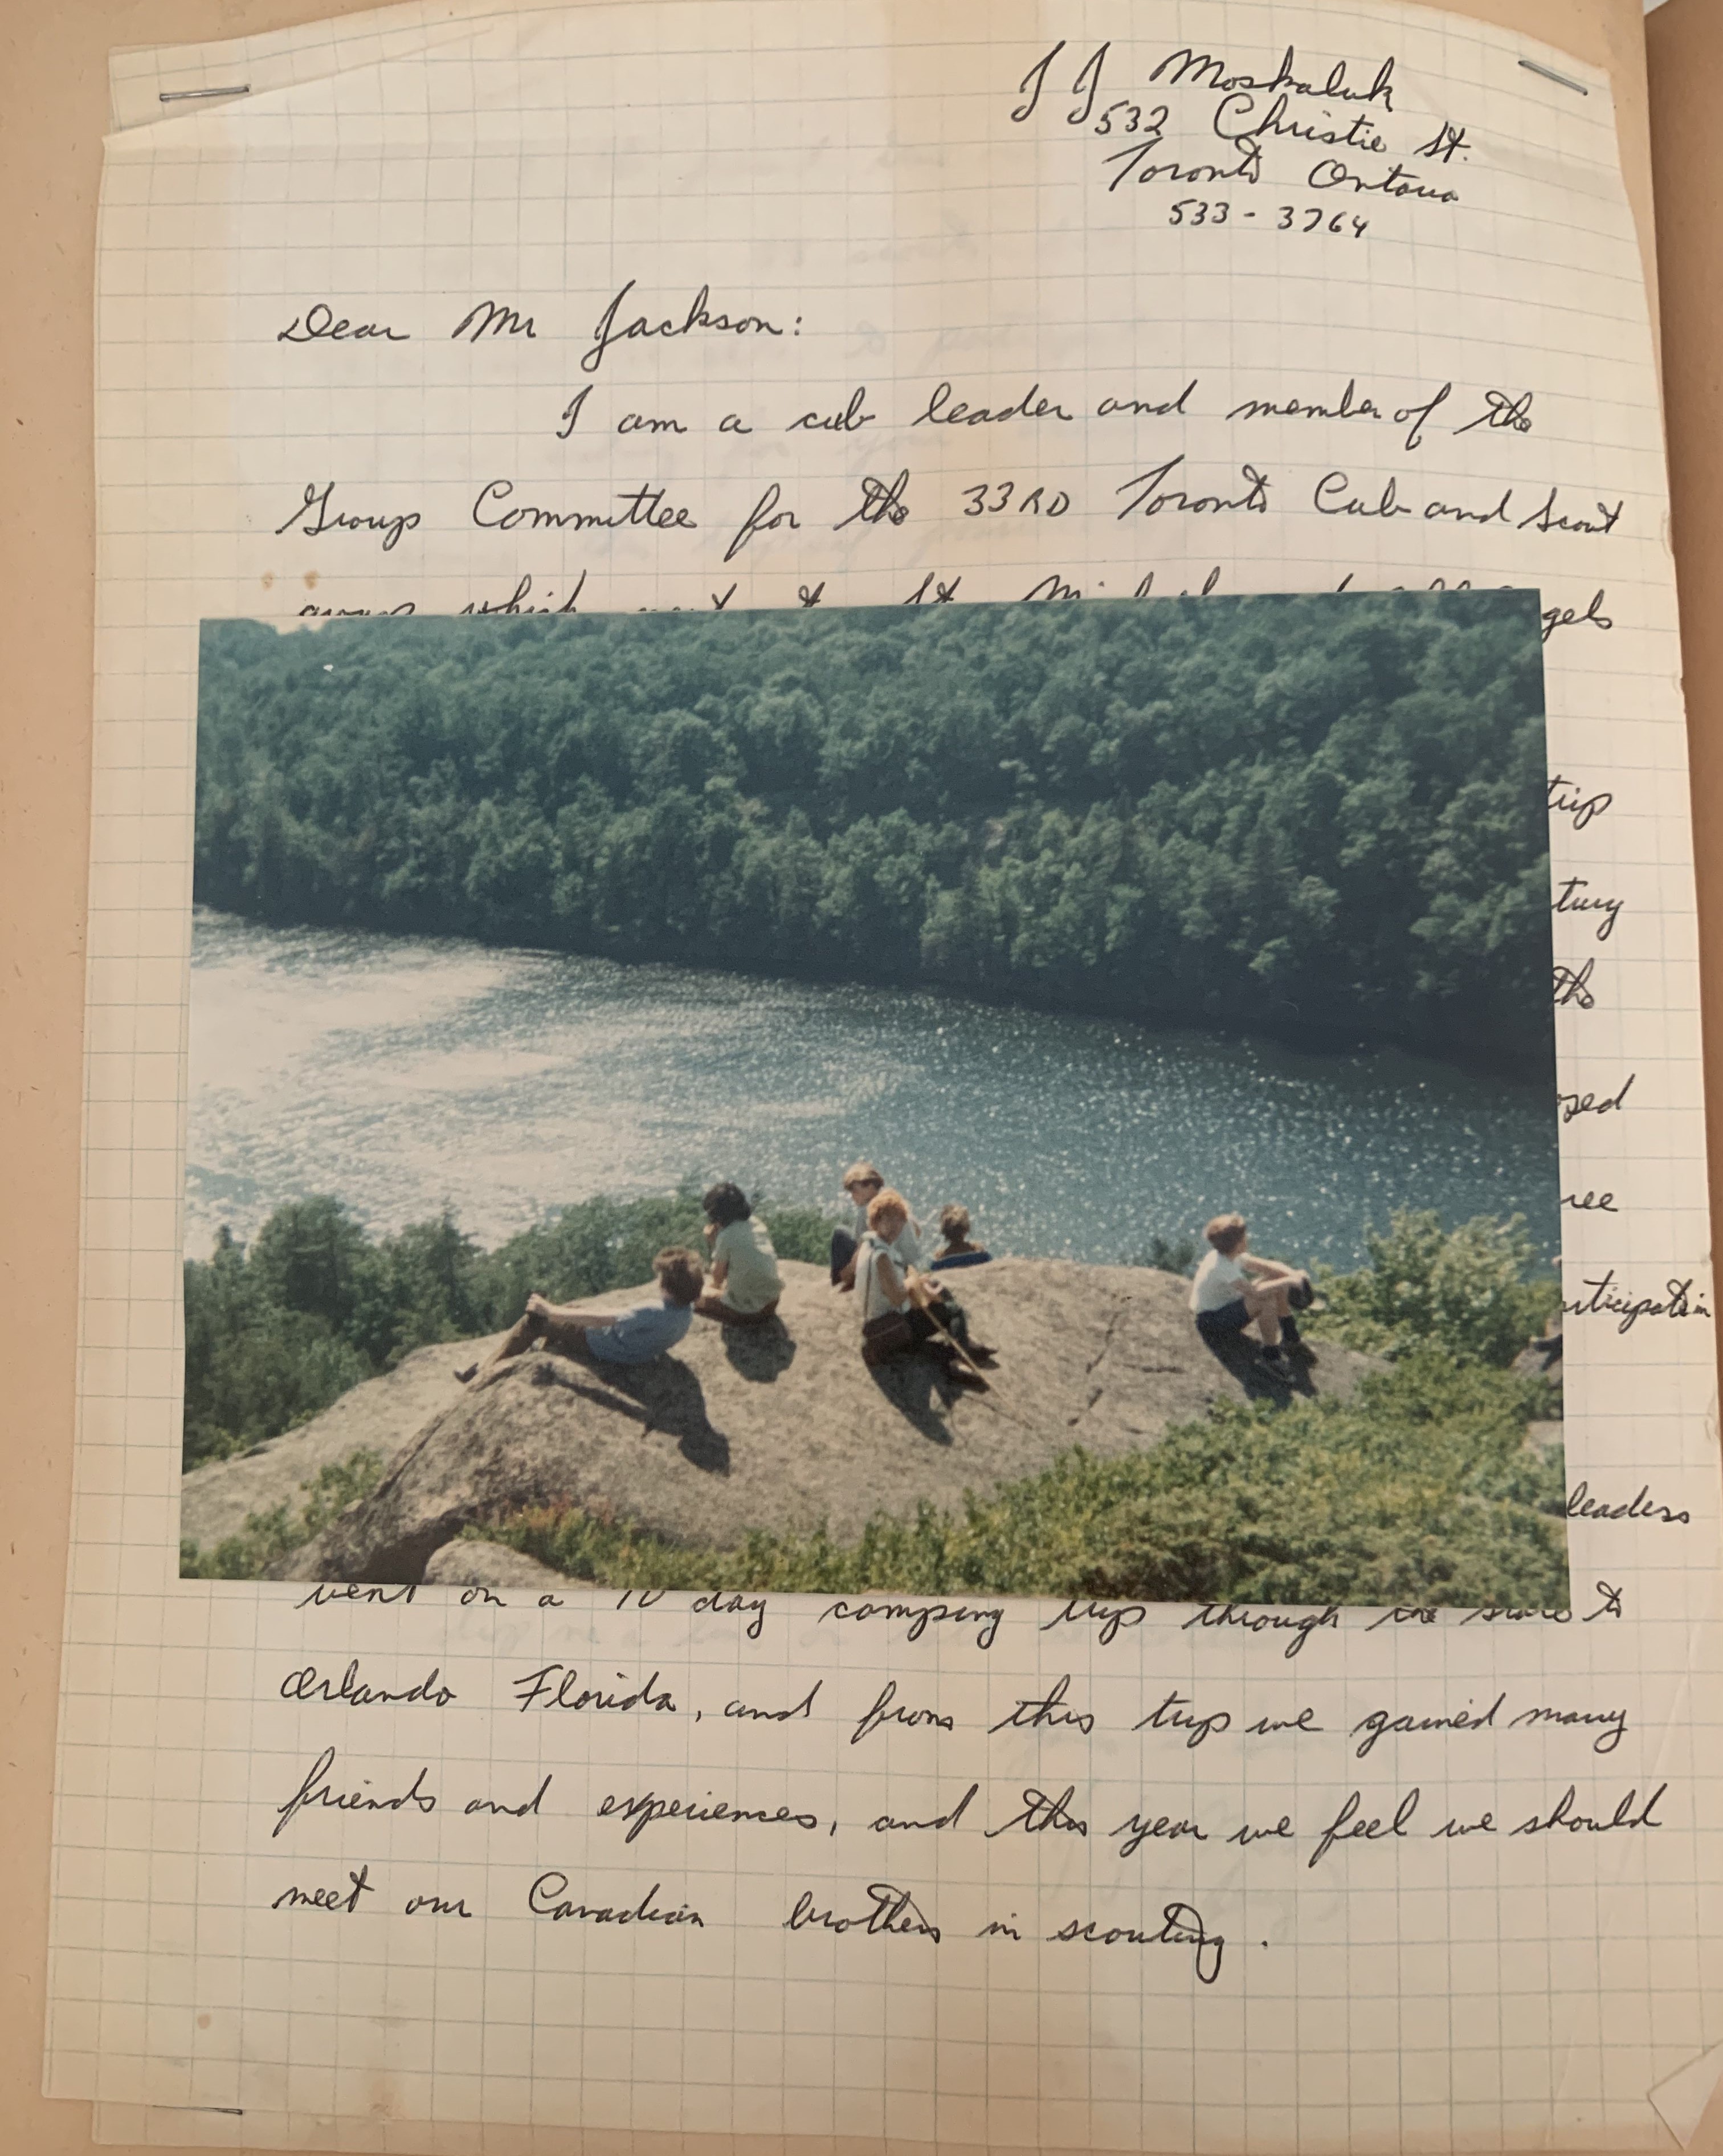 J J Moskaluk
532 Christie St.
Toronto Ontario
533-3764
Dear Mr Jackson:
I am a cub leader and member of the
Group Committee for the 33RD Toronto Cub and Scout
group which St. Michael and All Angels
trip
the
leaders
went on a 10 day camping trip through the states to
Orlando Florida, and from this trip we gained many
friends and experiences, and this year we feel we should
meet our Canadian brothers in scouting.